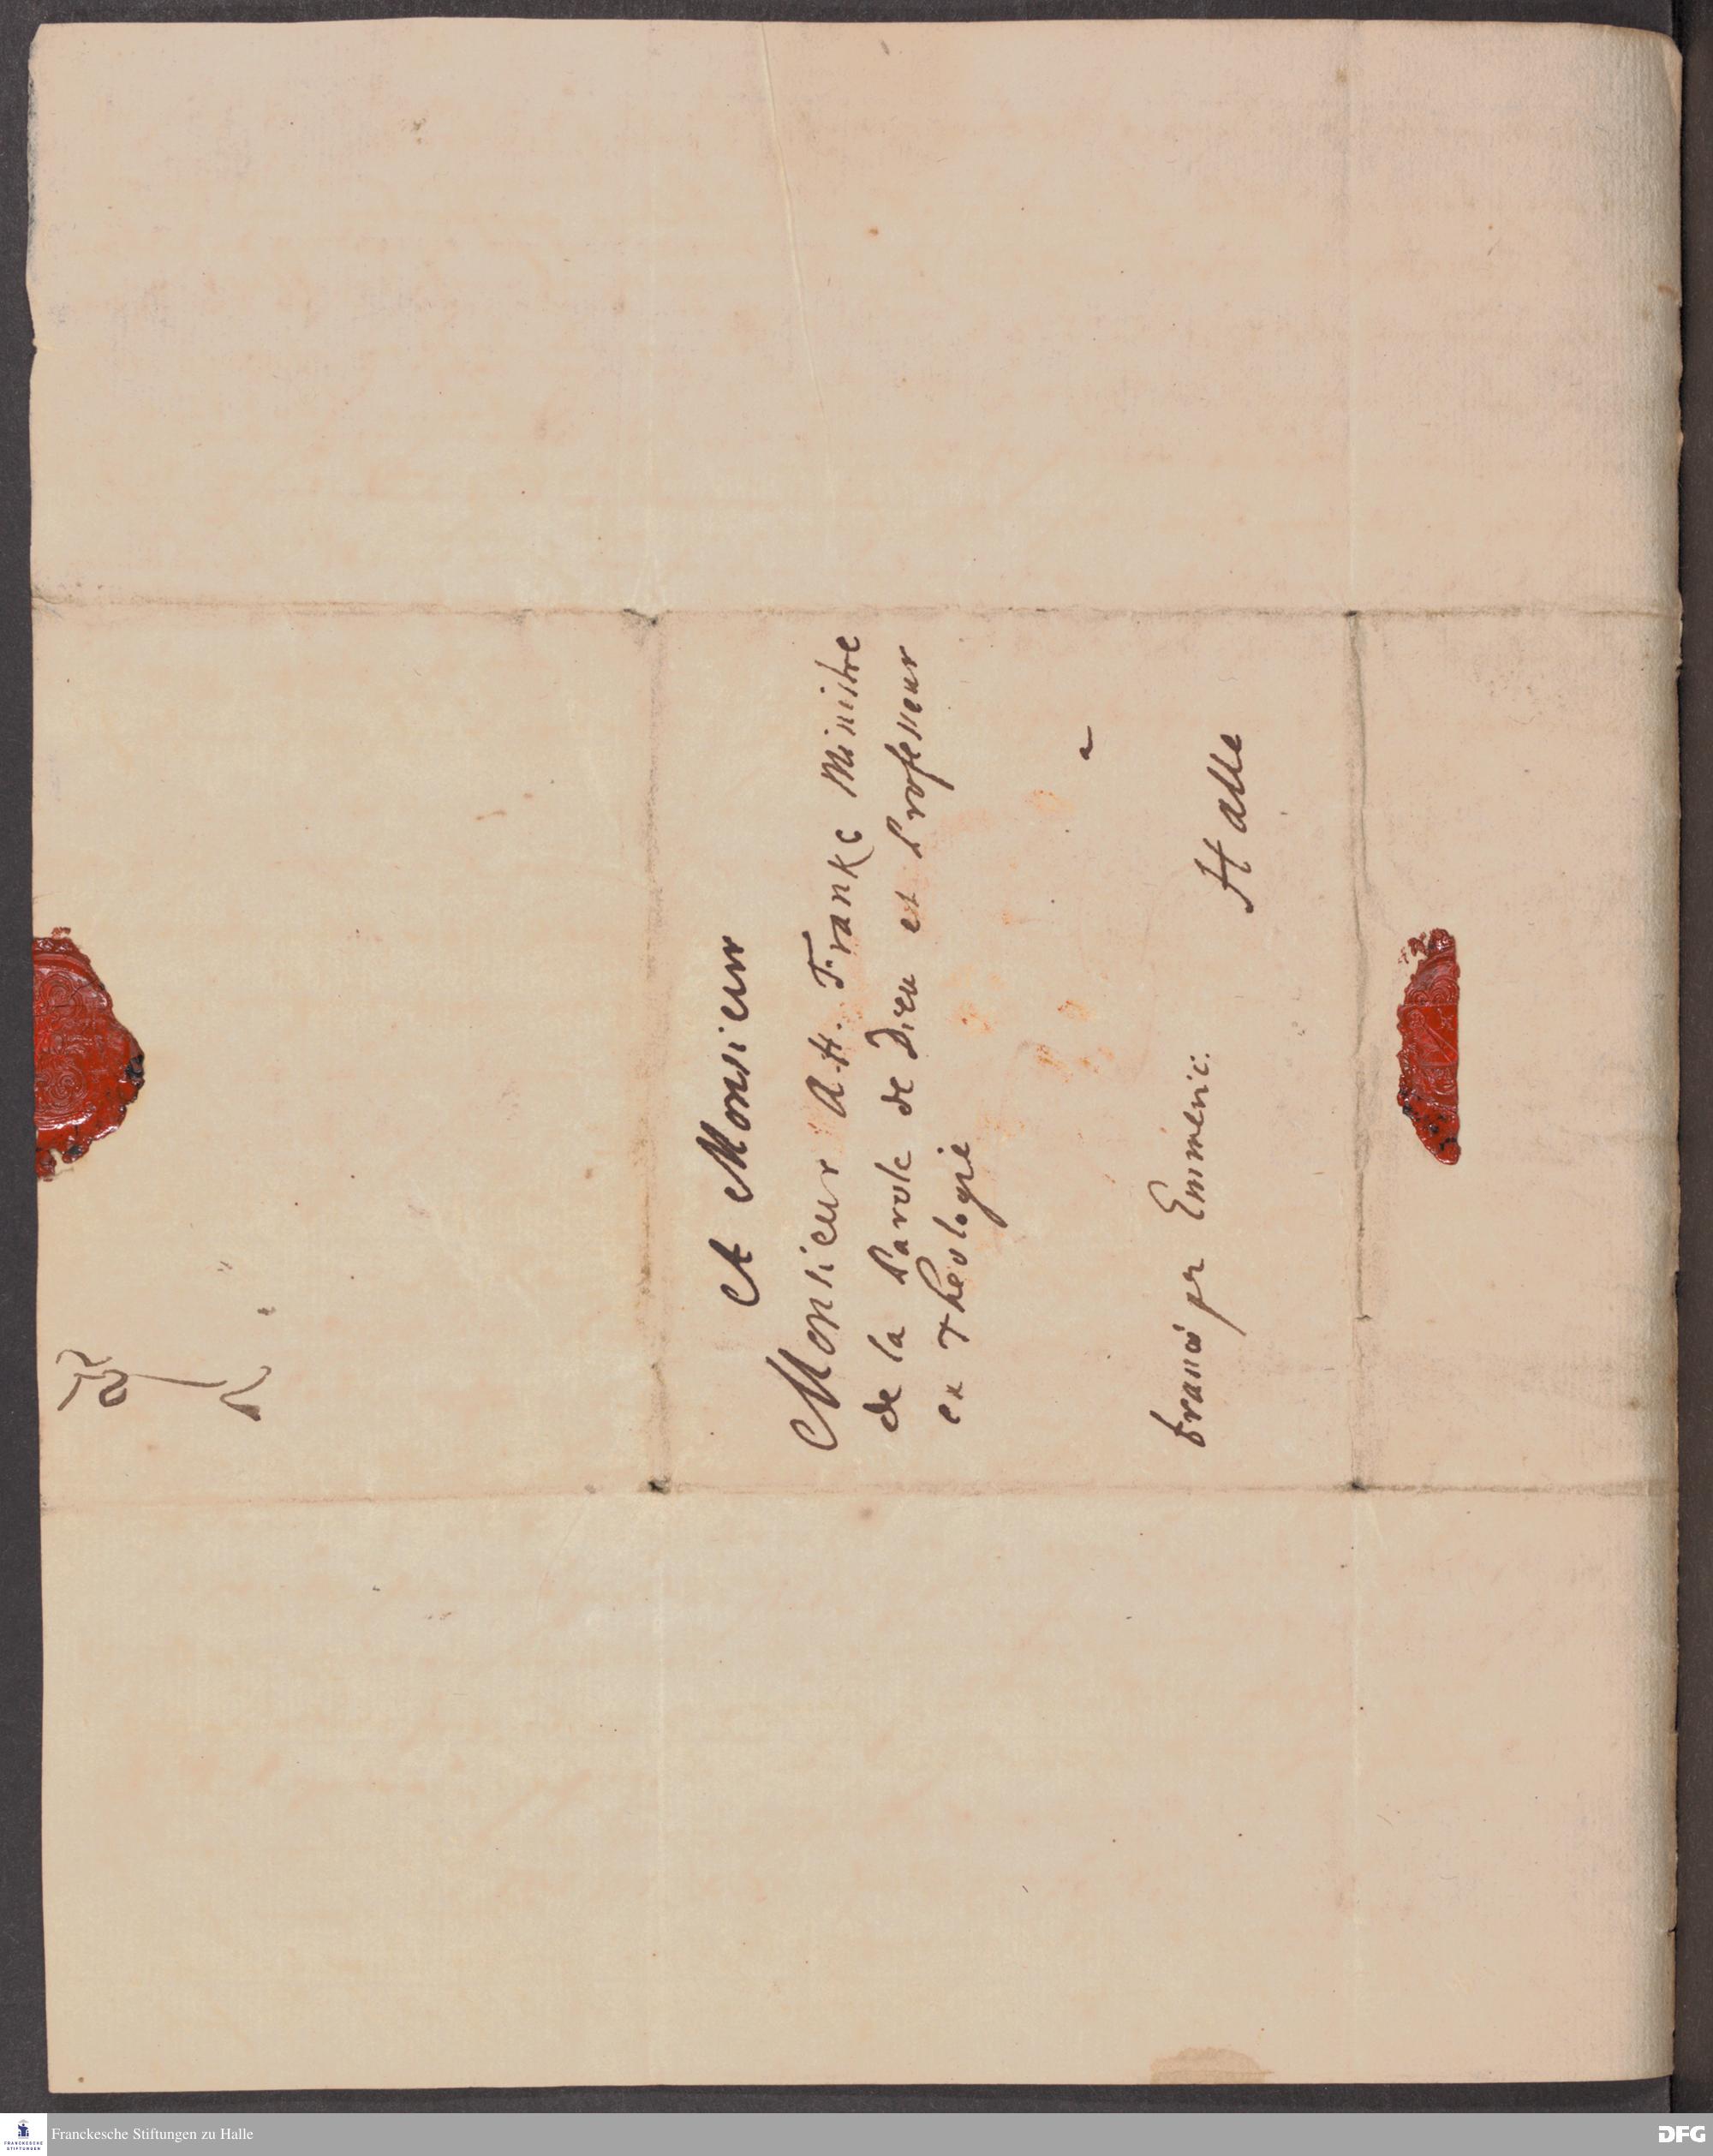 A Monsieur
Monsieur A. H. Franke Ministre
de la Parole de Dieu et Professeur
en Theologie
a
Halle
franco per Emmeric:
Franckesche Stiftungen zu Halle
FRANCKESCHE
STIFTUNGEN
DFG